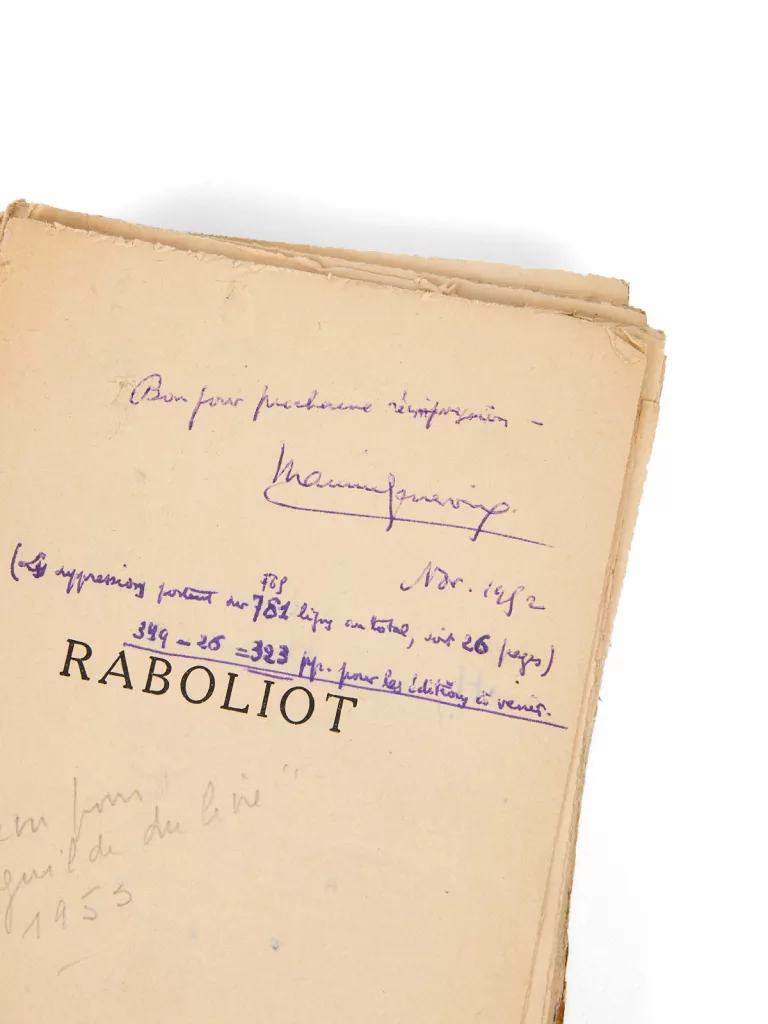 Bon pour prochaine réimpression –
Maurice Genevoix
Nov. 1952
765
(Les suppressions portent sur 781 lignes au total, soit 26 pages)
349 – 26 = 323 pp. pour les éditions à venir.
RABOLIOT
pour
guilde du livre"
1953